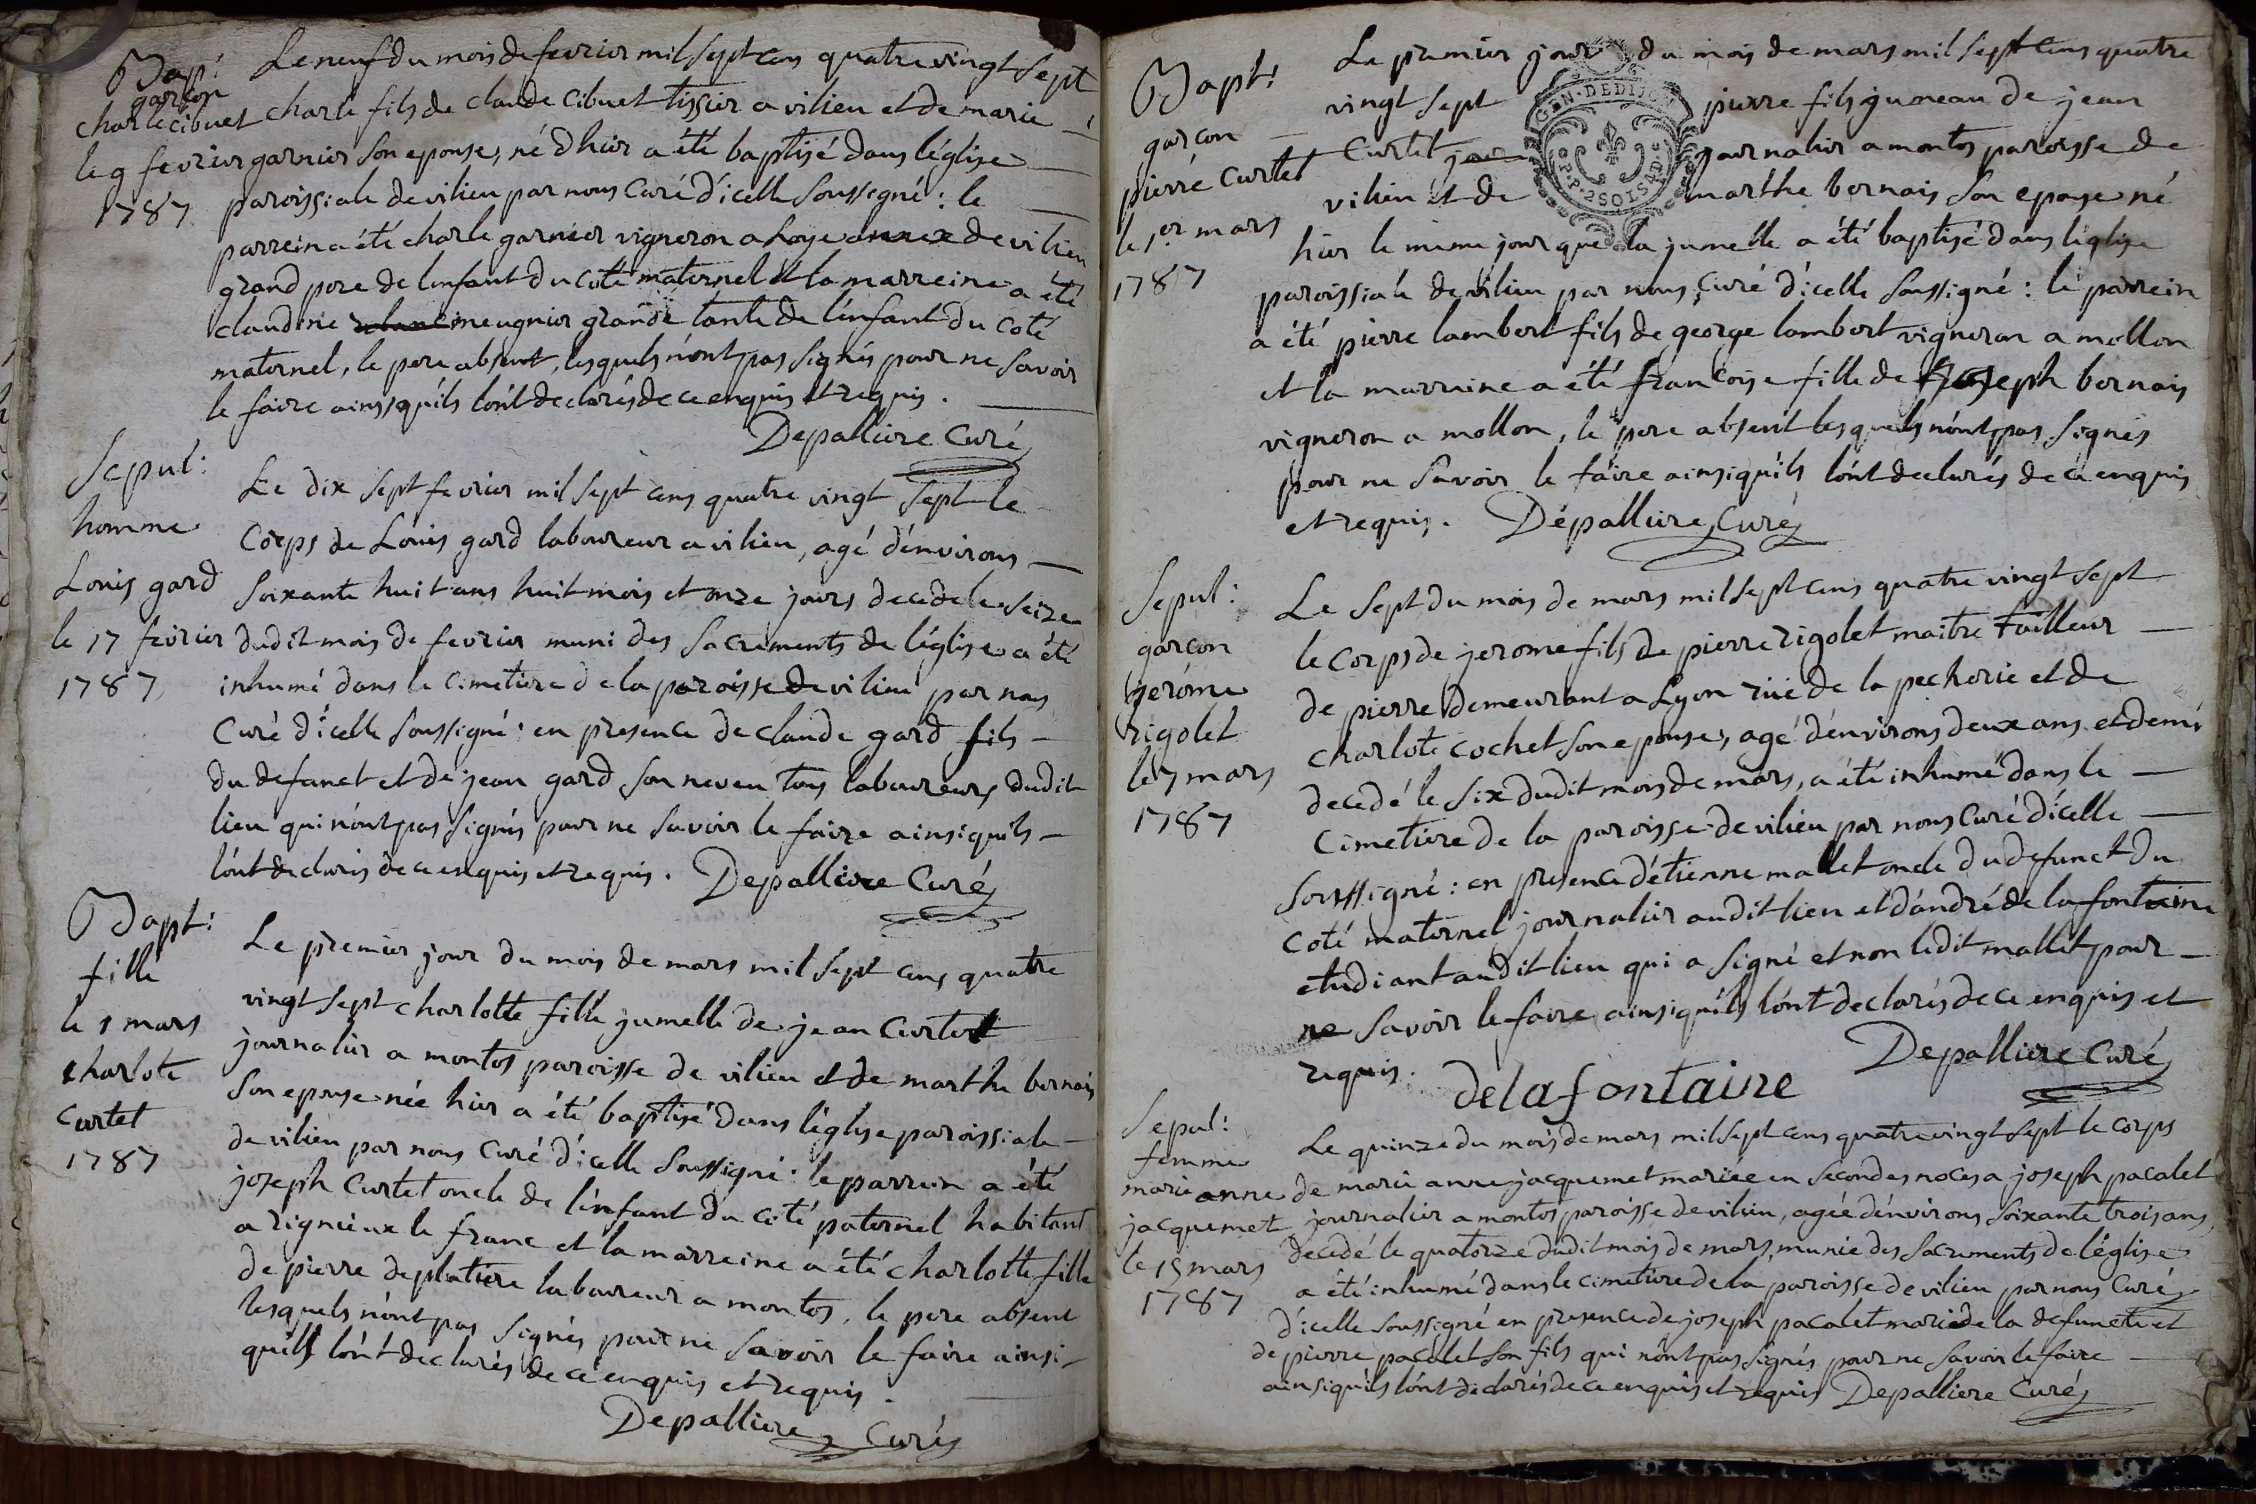 Bapt:
garçon
charle cibuet
le 9 fevrier
1787
Le neuf du mois de fevrier mil sept cens quatre vingt sept
charle fils de claude cibuet tissier a vilieu et de marie
garnier son epouse, né d'hier a été baptisé dans l'église
paroissiale de vilieu par nous Curé d'icelle soussigné : le
parrein a été charle garnier vigneron a Loye annexe de vilieu
grand pere de l'enfant du coté maternel et la marreine a été
claudine meugnier grande tante de l'enfant du coté
maternel, le pere absent, lesquels n'ont pas signés pour ne savoir
le faire ainsi qu'ils l'ont declarés de ce enquis et requis.
Depalliere Curé
Sepul:
homme
Louis gard
le 17 fevrier
1787
Le dix sept fevrier mil sept cens quatre vingt sept le
Corps de Louis gard laboureur a vilieu, agé d'environs
soixante huit ans huit mois et onze jours decedé le seize
dudit mois de fevrier muni des sacrements de l'église a été
inhumé dans le cimetiere de la paroisse de vilieu par nous
Curé d'icelle soussigné : en presence de claude gard fils
du defunct et de jean gard son neveu tous laboureurs dudit
lieu qui n'ont pas signés pour ne savoir le faire ainsi quils
l'ont declarés de ce enquis et requis. Depalliere Curé
Bapt:
fille
le 1 mars
charlote
Curtet
1787
Le premier jour du mois de mars mil sept cens quatre
vingt sept charlotte fille jumelle de jean Curtet
journalier a montos paroisse de vilieu et de marthe bernais
son epouse née hier a été baptisé dans l'église paroissiale
de vilieu par nous Curé d'icelle soussigné : le parrein a été
joseph Curtet oncle de l'enfant du coté paternel habitant
a rignieux le franc et la marreine a été charlotte fille
de pierre deplatiere laboureur a montos, le pere absent
lesquels n'ont pas signés pour ne savoir le faire ainsi
qu'ils l'ont declarés de ce enquis et requis.
Depalliere Curé
Bapt:
garcon
pierre Curtet
le 1er mars
1787
Le premier jour du mois de mars mil sept cens quatre
vingt sept pierre fils jumeau de jean
Curtet journalier a montos paroisse de
vilieu et de marthe bernais son epouse né
hier le meme jour que la jumelle a été baptisé dans l'église
paroissiale de vilieu par nous Curé d'icelle soussigné : le parrein
a été pierre lambert fils de george lambert vigneron a mollon
et la marreine a été francoise fille de joseph bernais
vigneron a mollon, le pere absent lesquels n'ont pas signés
pour ne savoir le faire ainsi qu'ils l'ont declarés de ce enquis
et requis. Depalliere Curé
GEN. DE DIJON
P.P. 2 SOLS 4 D.
Sepul:
garcon
jerôme
rigolet
le 7 mars
1787
Le sept du mois de mars mil sept cens quatre vingt sept
le corps de jerome fils de pierre rigolet maitre tailleur
de pierre demeurant a Lyon rüe de la pecherie et de
charlote cochet son epouse, agé d'environs deux ans et demi
decedé le six dudit mois de mars, a été inhumé dans le
Cimetiere de la paroisse de vilieu par nous Curé d'icelle
soussigné : en presence d'étienne mallet oncle du defunct du
Coté maternel journalier audit lieu et d'andré de la fontaine
etudiant audit lieu qui a signé et non ledit mallet pour
ne savoir le faire ainsi qu'ils l'ont declarés de ce enquis et
requis.
Depalliere Curé
delafontaine
Sepul:
femme
marie anne
jacquemet
le 15 mars
1787
Le quinze du mois de mars mil sept cens quatre vingt sept le corps
de marie anne jacquemet mariée en secondes noces a joseph pacalet
journalier a montos paroisse de vilieu, agée d'environs soixante trois ans,
decedé le quatorze dudit mois de mars, munie des sacrements de l'église
a été inhumé dans le cimetiere de la paroisse de vilieu par nous Curé
d'icelle soussigné en presence de joseph pacalet mari de la defuncte et
de pierre pacalet son fils qui n'ont pas signés pour ne savoir le faire
ainsi qu'ils l'ont declarés de ce enquis et requis Depalliere Curé